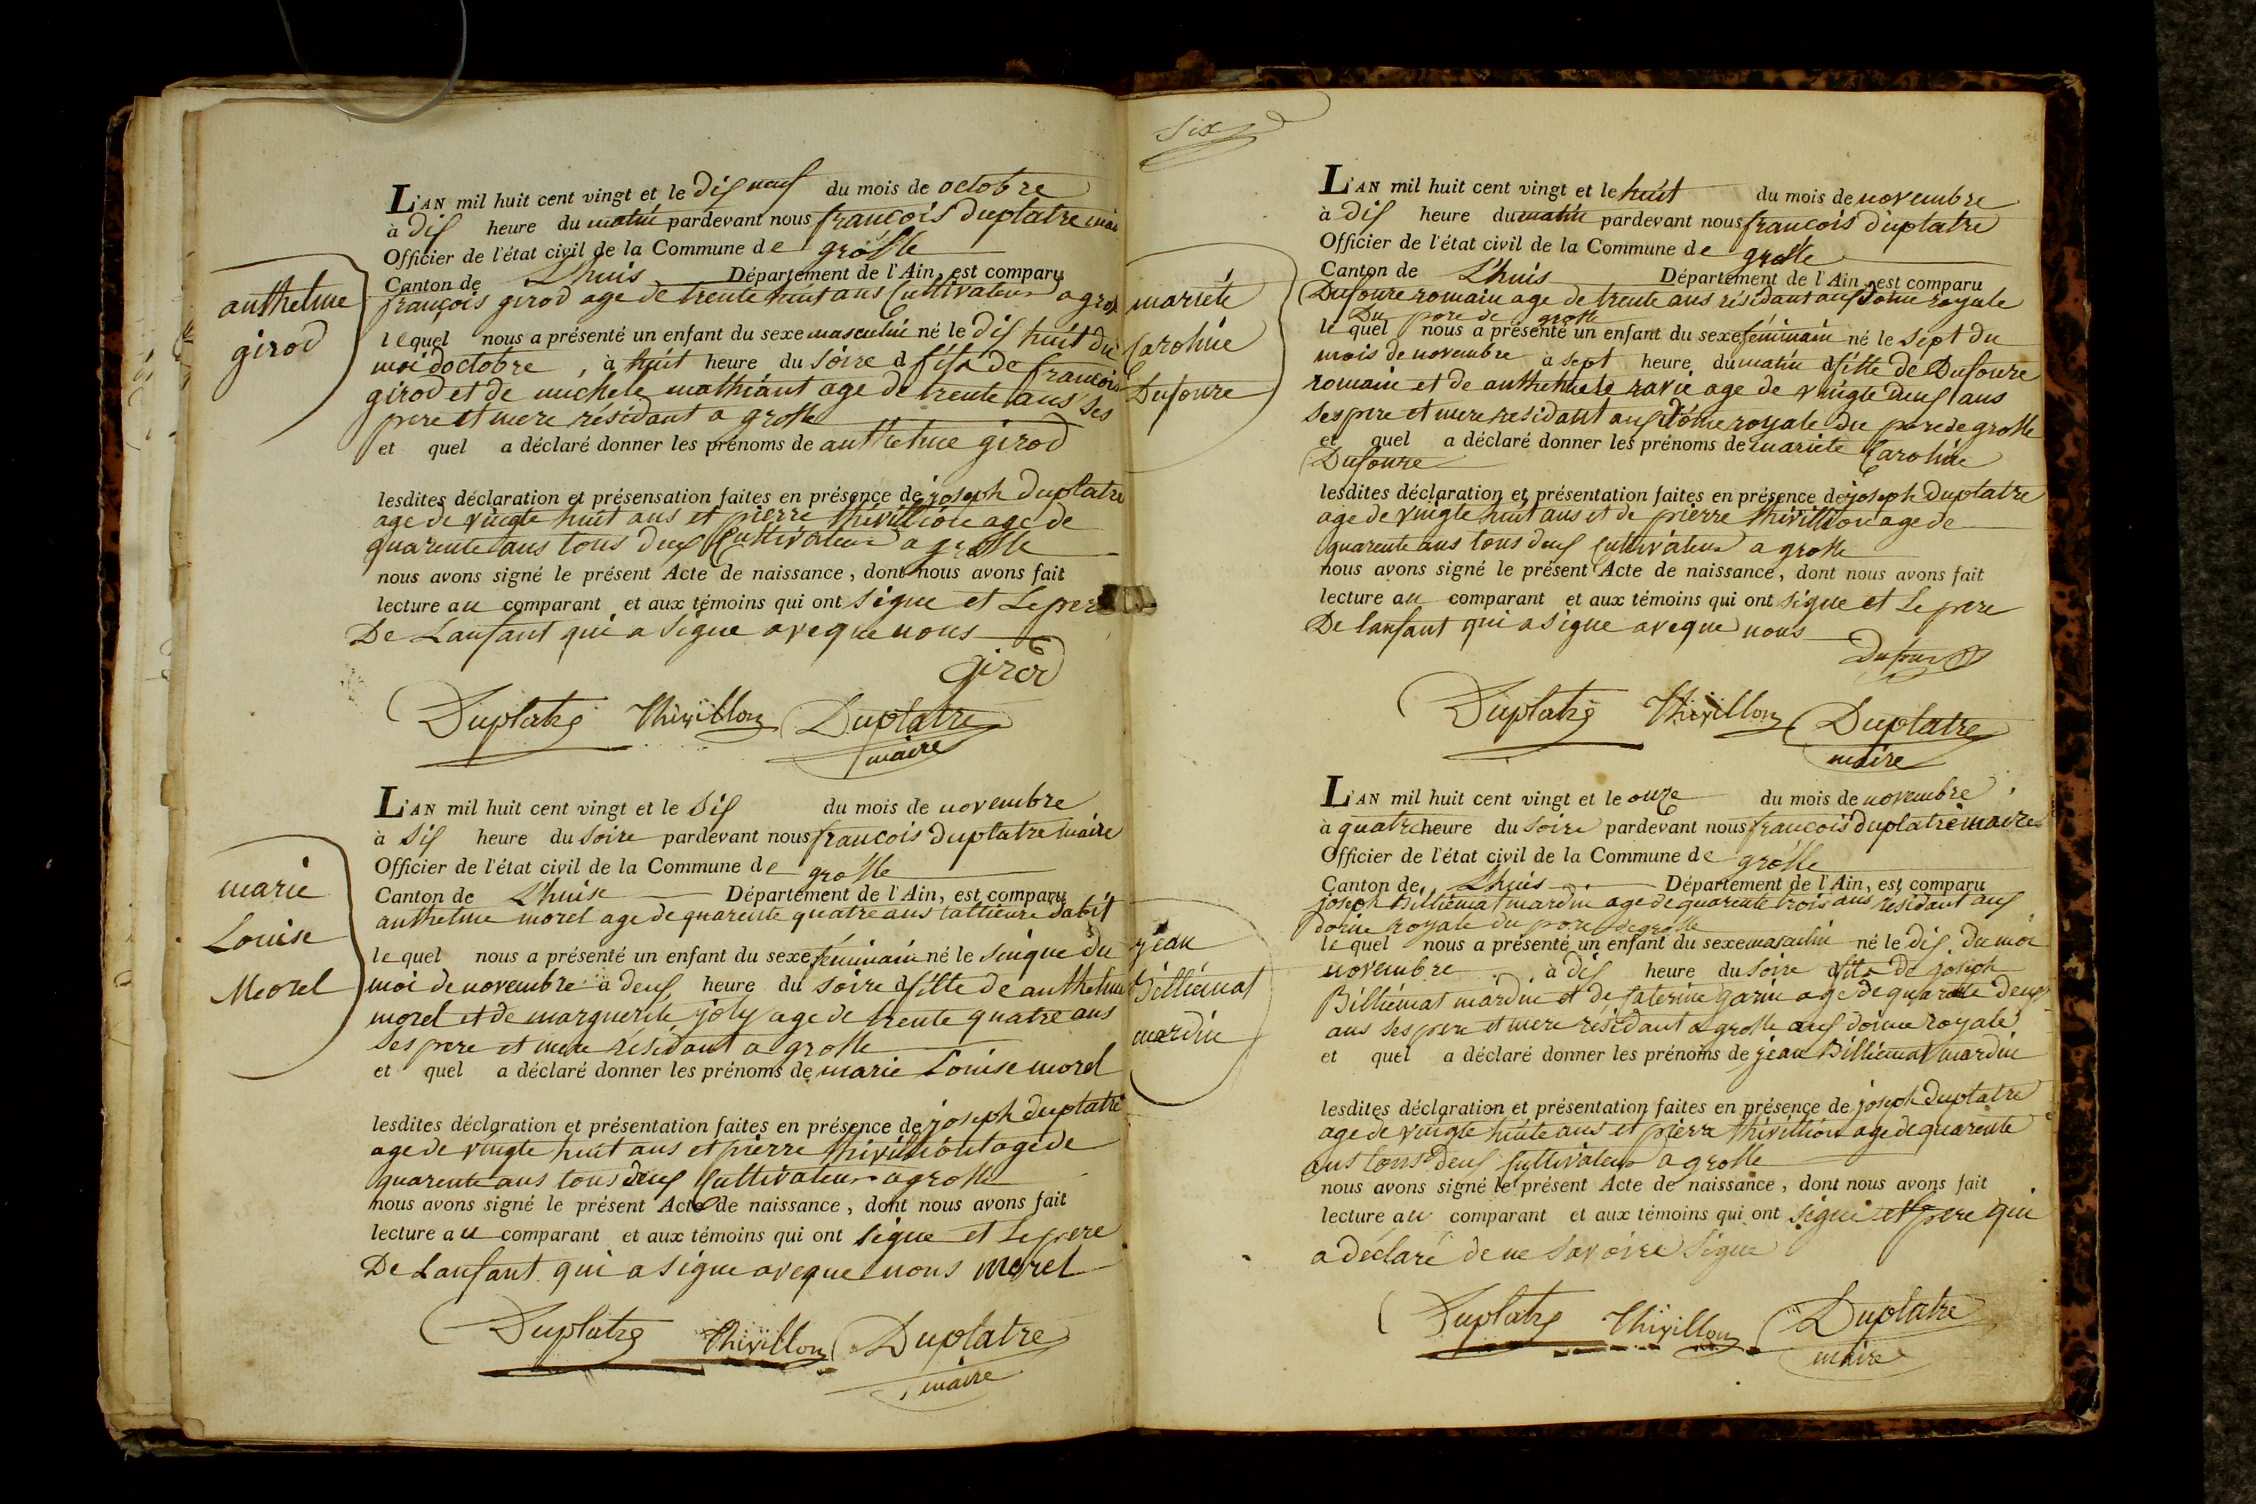 anthelme
girod
L'AN mil huit cent vingt et le dis neuf du mois de octobre
à dis heure du matin pardevant nous françois duplatre mair
Officier de l'état civil de la Commune de grolle
Canton de L'huis Département de l'Ain, est comparu
françois girod age de trente huit ans Cultivateur a grol
lequel nous a présenté un enfant du sexe masculin né le dis huit du
moi doctobre, à huit heure du soire d fils de francois
girod et de michele mathiant age de trente ans ses
pere et mere résidant a grolle
et quel a déclaré donner les prénoms de anthelme girod
lesdites déclaration et présensation faites en présence de joseph duplatre
age de vingte huit ans et pierre thivillion age de
quarente ans tous deus Cultivateur a grolle
nous avons signé le présent Acte de naissance, dont nous avons fait
lecture au comparant et aux témoins qui ont signe et Le pere
De Lanfant qui a signe aveque nous
girod
Duplatre Thivillon Duplatre
maire
marie
Louise
Morel
L'AN mil huit cent vingt et le sis du mois de novembre
à sis heure du soire pardevant nous francois duplatre maire
Officier de l'état civil de la Commune de grolle
Canton de L'huise Département de l'Ain, est comparu
anthelme morel age de quarente quatre ans tallieure dabit
le quel nous a présenté un enfant du sexe féminain né le sinque du
moi de novembre à deus heure du soire d fille de anthelme
morel et de marguerite joly age de trente quatre ans
ses pere et mere résidant a grolle
et quel a déclaré donner les prénoms de marie Louise morel
lesdites déclaration et présentation faites en présence de joseph duplatre
age de vingte huit ans et pierre thivilliont age de
quarente ans tous deus Cultivateur a grolle
nous avons signé le présent Acte de naissance, dont nous avons fait
lecture au comparant et aux témoins qui ont signe et Le pere
De Lanfant qui a signe aveque nous Morel
Duplatre Thivillon Duplatre
maire
six
mariéte
Caroline
Dufoure
L'AN mil huit cent vingt et le huit du mois de novembre
à dis heure du matin pardevant nous francois duplatre
Officier de l'état civil de la Commune de grolle
Canton de L'huis Département de l'Ain, est comparu
Dufoure romain age de trente ans résidant aus doine royale
Du pore de grolle
le quel nous a présenté un enfant du sexe féminain né le sept du
mois de novembre à sept heure du matin d fille de Dufoure
romain et de anthelmete ravie age de vingte deus ans
ses pere et mere residant aus doine royale du pore de grolle
et quel a déclaré donner les prénoms de mariete Caroline
Dufoure
lesdites déclaration et présentation faites en présence de joseph duplatre
age de vingte huit ans et de pierre thivillion age de
quarente ans tous deus Cultivateur a grolle
nous avons signé le présent Acte de naissance, dont nous avons fait
lecture au comparant et aux témoins qui ont signe et Le pere
De lanfant qui a signe aveque nous
Dufour
Duplatre Thivillon Duplatre
maire
jean
Billiémat
mardin
L'AN mil huit cent vingt et le onze du mois de novembre
à quatre heure du soire pardevant nous francois duplatre maire
Officier de l'état civil de la Commune de grolle
Canton de L'huis Département de l'Ain, est comparu
joseph Billiémat mardin age de quarente trois ans résidant aus
doine royale du pore de grolle
le quel nous a présenté un enfant du sexe masculin né le dis du moi
novembre à dis heure du soire d fils de joseph
Billiémat mardin et de Caterine garin age de quarente deus
ans ses pere et mere résidant a grolle aus doine royale
et quel a déclaré donner les prénoms de jean Billiémat mardin
lesdites déclaration et présentation faites en présence de joseph duplatre
age de vingte huite ans et pierre thivillion age de quarente
ans tous deus Cultivateur a grolle
nous avons signé le présent Acte de naissance, dont nous avons fait
lecture au comparant et aux témoins qui ont signe et le pere qui
a déclaré de ne savoire signe
Duplatre Thivillon Duplatre
maire